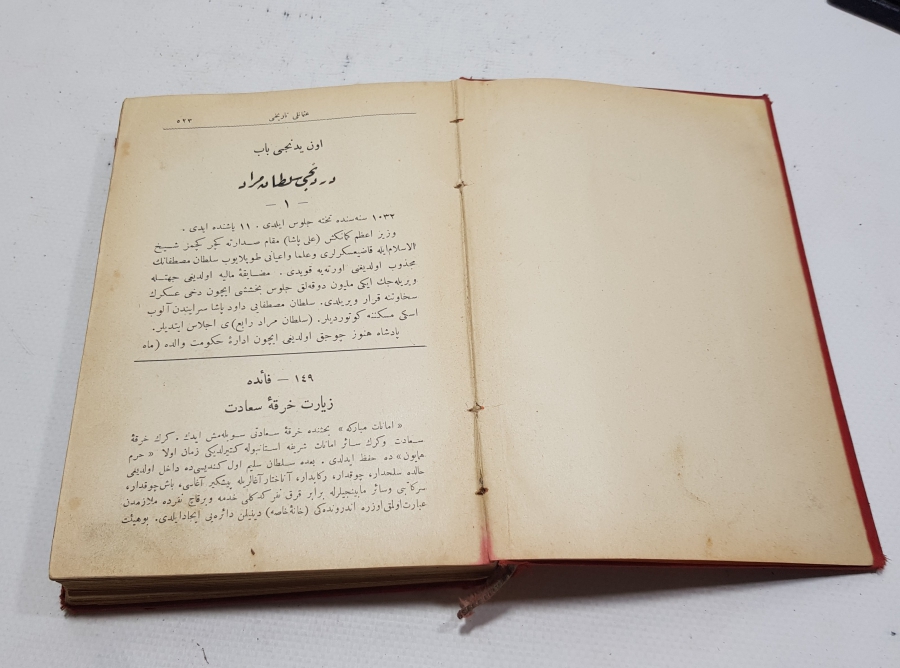 عثمانلی تاریخی ٥٢٣
اون یدنجی باب
دردنجی سلطان مراد
— ١ —
١٠٣٢ سنه‌سنده تخته جلوس ایلدی . ١١ یاشنده ایدی .
وزیر اعظم کمانکش (علی پاشا) مقام صدارته کچر کچمز شیخ
الاسلام ایله قاضیعسکرلری وعلما واعیانی طوپلایوب سلطان مصطفانك
مجذوب اولدیغنی اورته‌یه قویدی . مضایقهٔ مالیه اولدیغی جهتله
ویریله‌جك ایکی ملیون دوقه‌لق جلوس بخششی ایچون دخی عسکرك
سخاوتنه قرار ویریلدی. سلطان مصطفایی داود پاشا سرایندن آلوب
اسکی مسکننه کوتوردیلر. (سلطان مراد رابع)ی اجلاس ایتدیلر.
پادشاه هنوز چوجق اولدیغی ایچون ادارهٔ حکومت والده (ماه
١٤٩ — فائده
زیارت خرقهٔ سعادت
« امانات مبارکه » بحثنده خرقهٔ سعادتی سویله‌مش ایدك . کرك خرقهٔ
سعادت وکرك سائر امانات شریفه استانبوله کتیرلدیکی زمان اولا « حرم
همایون » ده حفظ ایدلدی . بعده سلطان سلیم اول کندیسی‌ده داخل اولدیغی
حالده سلحدار، چوقدار، رکابدار، آناختار آغالریله پیشکیر آغاسی، باش چوقدار،
سرکاتبی وسائر مابینجیلرله برابر قرق نفر کدکلی خدمه وبرقاچ نفرده ملازمدن
عبارت اولمق اوزره اندرونده‌کی (خانهٔ خاصه) دینیلن دائره‌یی ایجاد ایلدی. بوهیئت